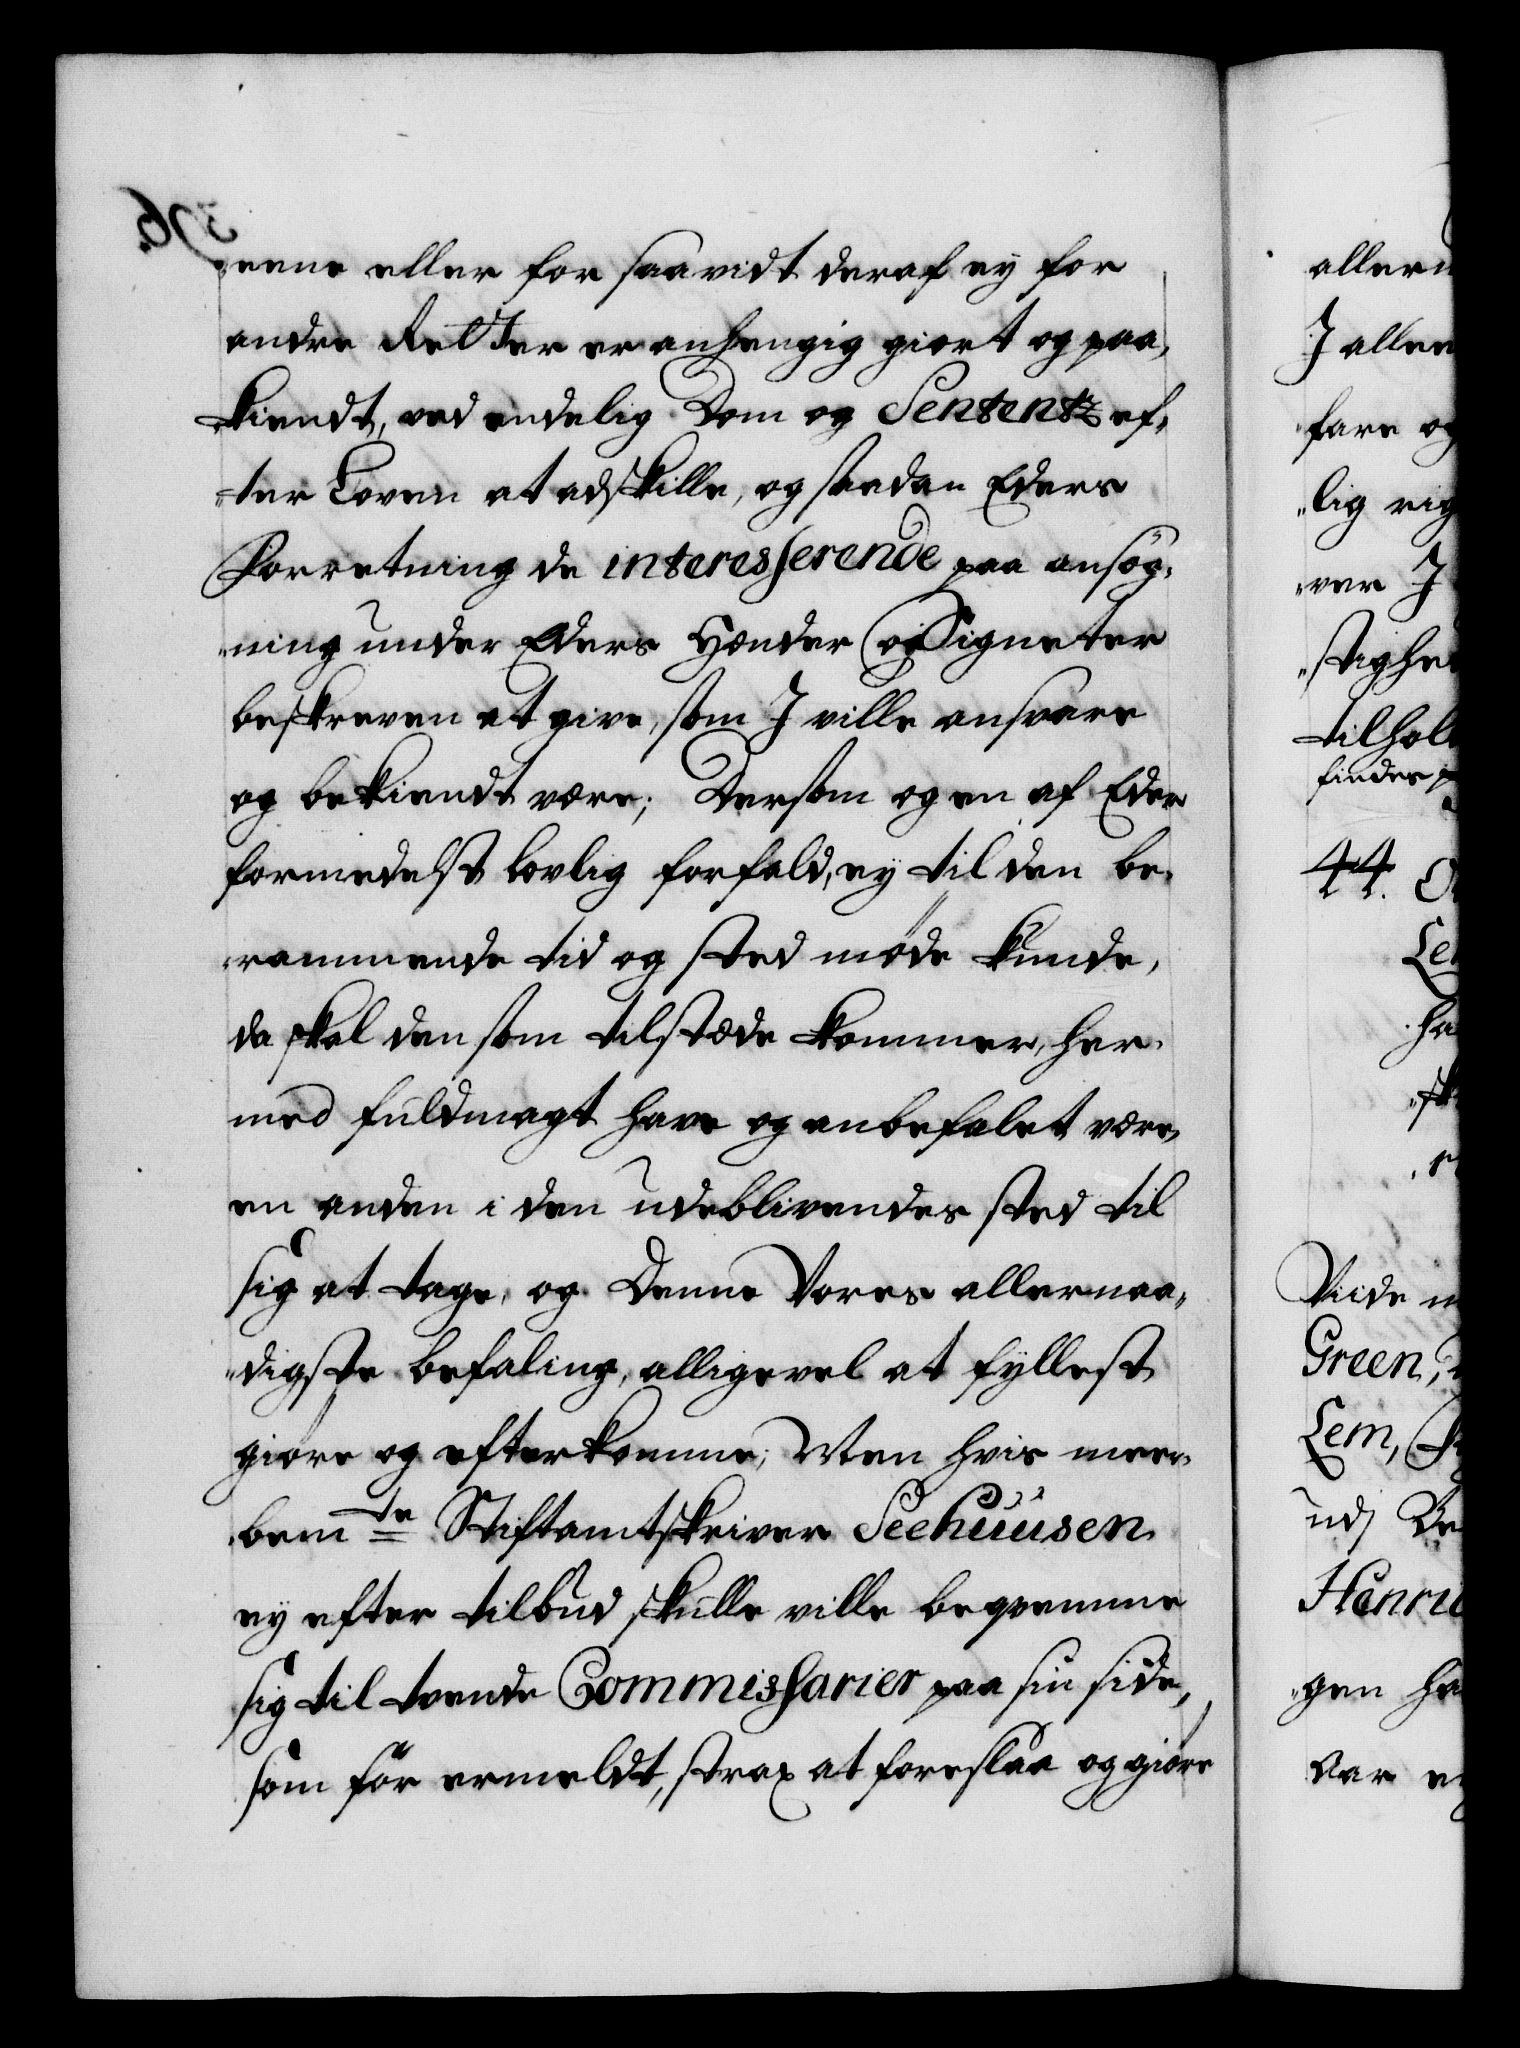 eene eller for saavidt deraf ey for
andre Retter er anhengig giort og paa,
kiendt, ved endelig Dom og Sententz ef,
ter Loven at adskille, og saadan Eders
Forretning de interesserende paa ansøg,
ning under Eders Hænder og Signeter
beskreven at give, som I ville ansvare
og bekiendt være; Dersom og en af Eder
formedelst lovlig forfald, ey til den be,
rammende tid og sted møde kunde,
da skal den som tilstæde kommer, her,
med fuldmagt have og anbefalet være,
en anden i den udeblivendes sted til
sig at tage, og Denne Vores allernaa,
digste befaling, alligevel at fyllest
giøre og efterkomme; Men hvis meer,
bem<sup>te</sup> Stiftamtskriver Seehuusen
ey efter tilbud skulle ville beqvemme
sig til tvende Commissarier paa sin side,
som før ermeldt, strax at foreslaa og giøre
allern
I aller
fare og
lig rig
ver I
stighe
tilhol
findes p
44.
Le
ha
sk
Viide
Green,
Lem,
udj De
Henri
gen ha
Var e